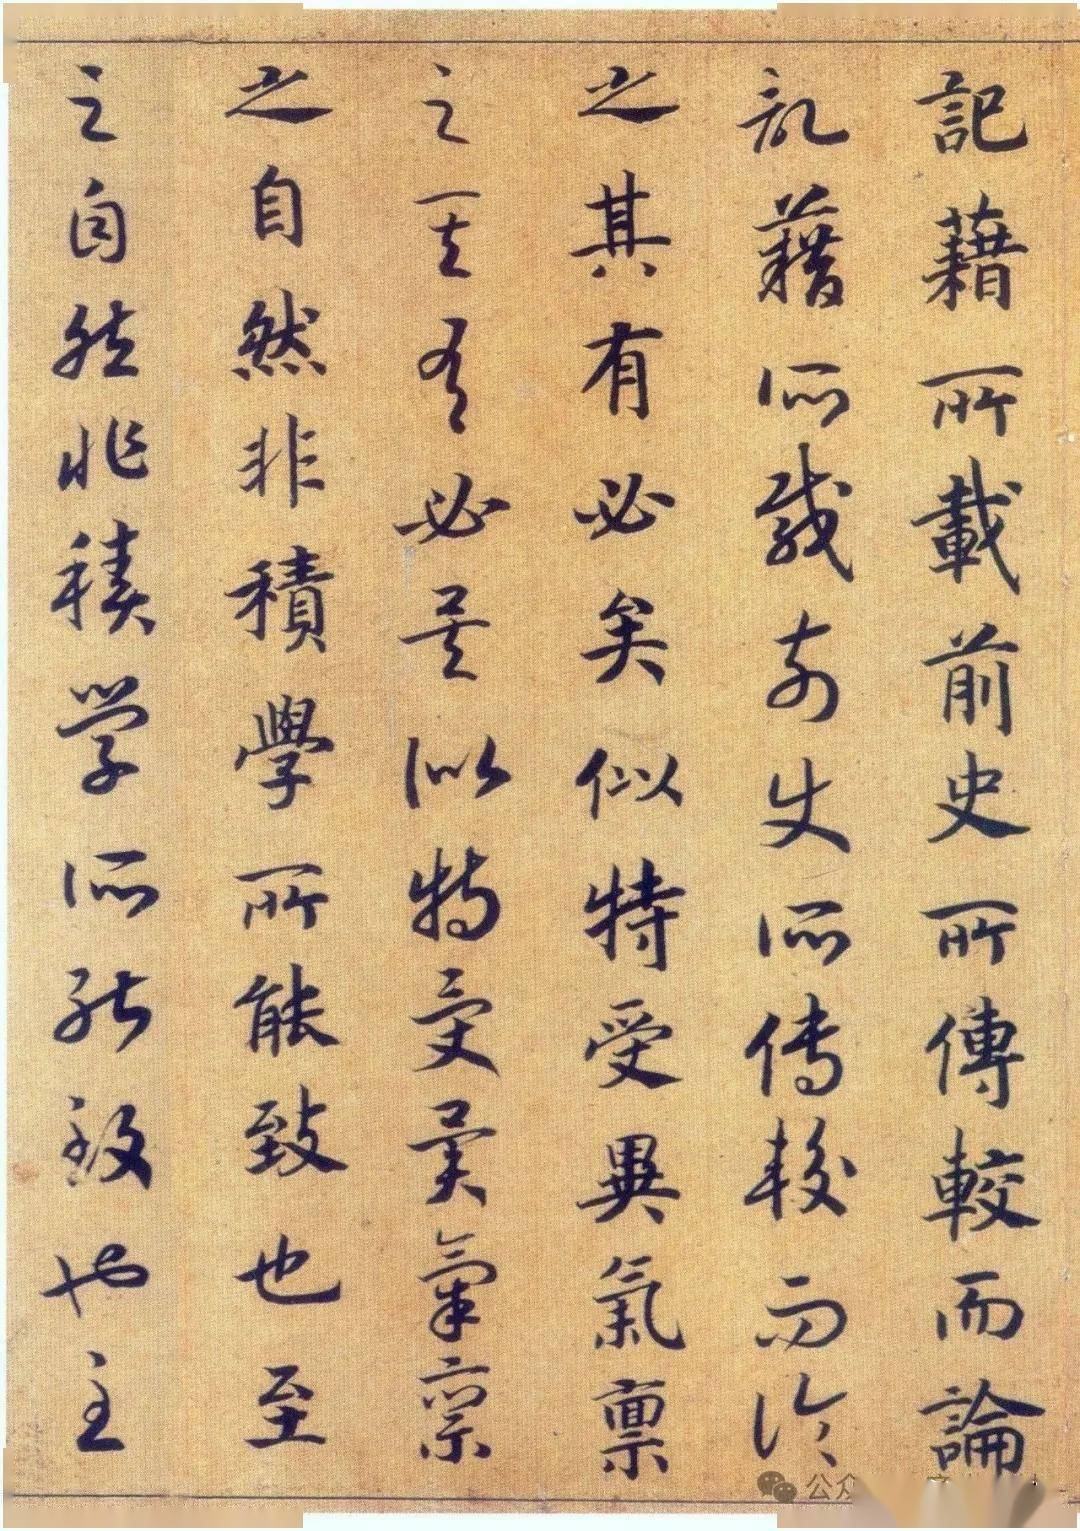 記藉所載前史所傳較而論
記藉所載前史所傳較而論
之其有必矣似特受異氣禀
之其有必矣似特受異氣禀
之自然非積學所能致也至
之自然非積學所能致也至
公众